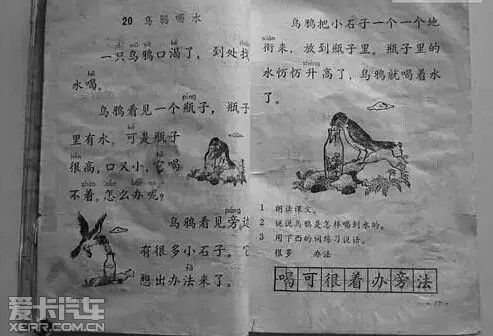 20 乌鸦喝水
一只乌鸦口渴了，到处找
水喝。
píng
乌鸦看见一个瓶子，瓶子
里有水，可是瓶子
很高，口又小，它喝
不着，怎么办呢？
páng
乌鸦看见旁边
有很多小石子。它
想出办法来了。
乌鸦把小石子一个一个地
xián
衔来，放到瓶子里。瓶子里的
shēng
水升高了，乌鸦就喝着水
了。
1 朗读课文。
2 说说乌鸦是怎样喝到水的。
3 用下面的词练习说话。
很多 办法
喝可很着办旁法
爱卡汽车
.COM.CN